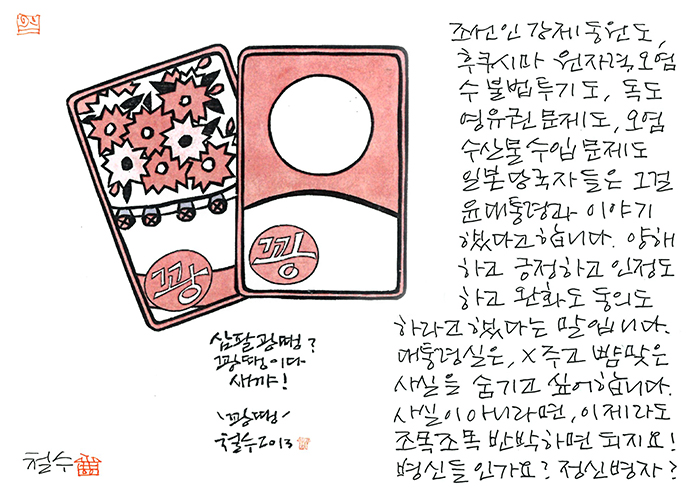 꽝
꽝
삼팔광땡?
꽝땡이다
새꺄!
〈꽝땡〉
철수2013
조선인 강제동원도,
후쿠시마 원자력오염
수 불법투기도, 독도
영유권 문제도, 오염
수산물 수입 문제도
일본 당국자들은 그걸
윤대통령과 이야기
했다고 합니다. 양해
하고 긍정하고 인정도
하고 완화도 동의도
하라고 했다는 말입니다.
대통령실은, X주고 뺨맞은
사실을 숨기고 싶어합니다.
사실이 아니라면, 이제라도
조목조목 반박하면 되지요!
병신들인가요? 정신병자?
철수